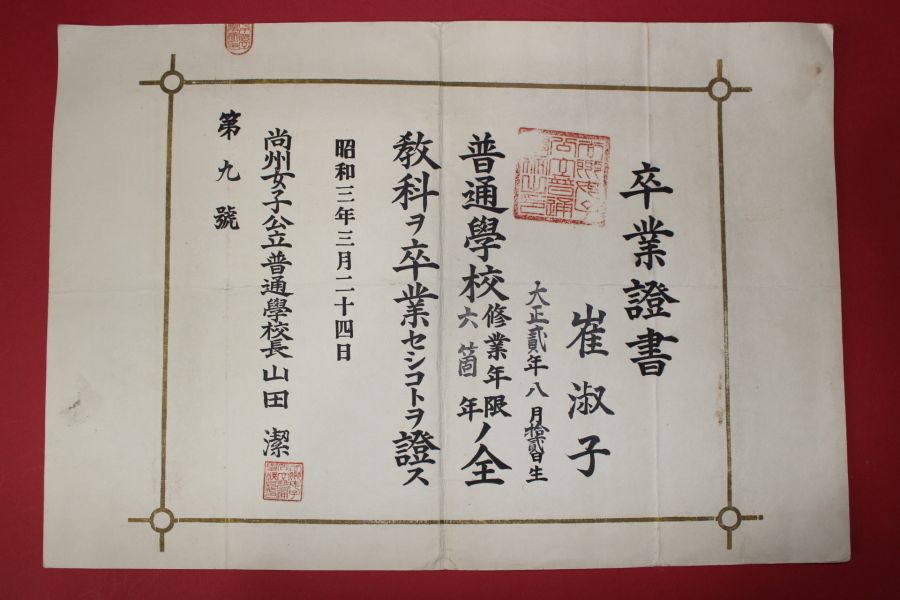 卒業證書
崔淑子
大正貳年八月拾貳日生
普通學校修業年限六箇年ノ全
教科ヲ卒業セシコトヲ證ス
昭和三年三月二十四日
尚州女子公立普通學校長山田潔
第九號